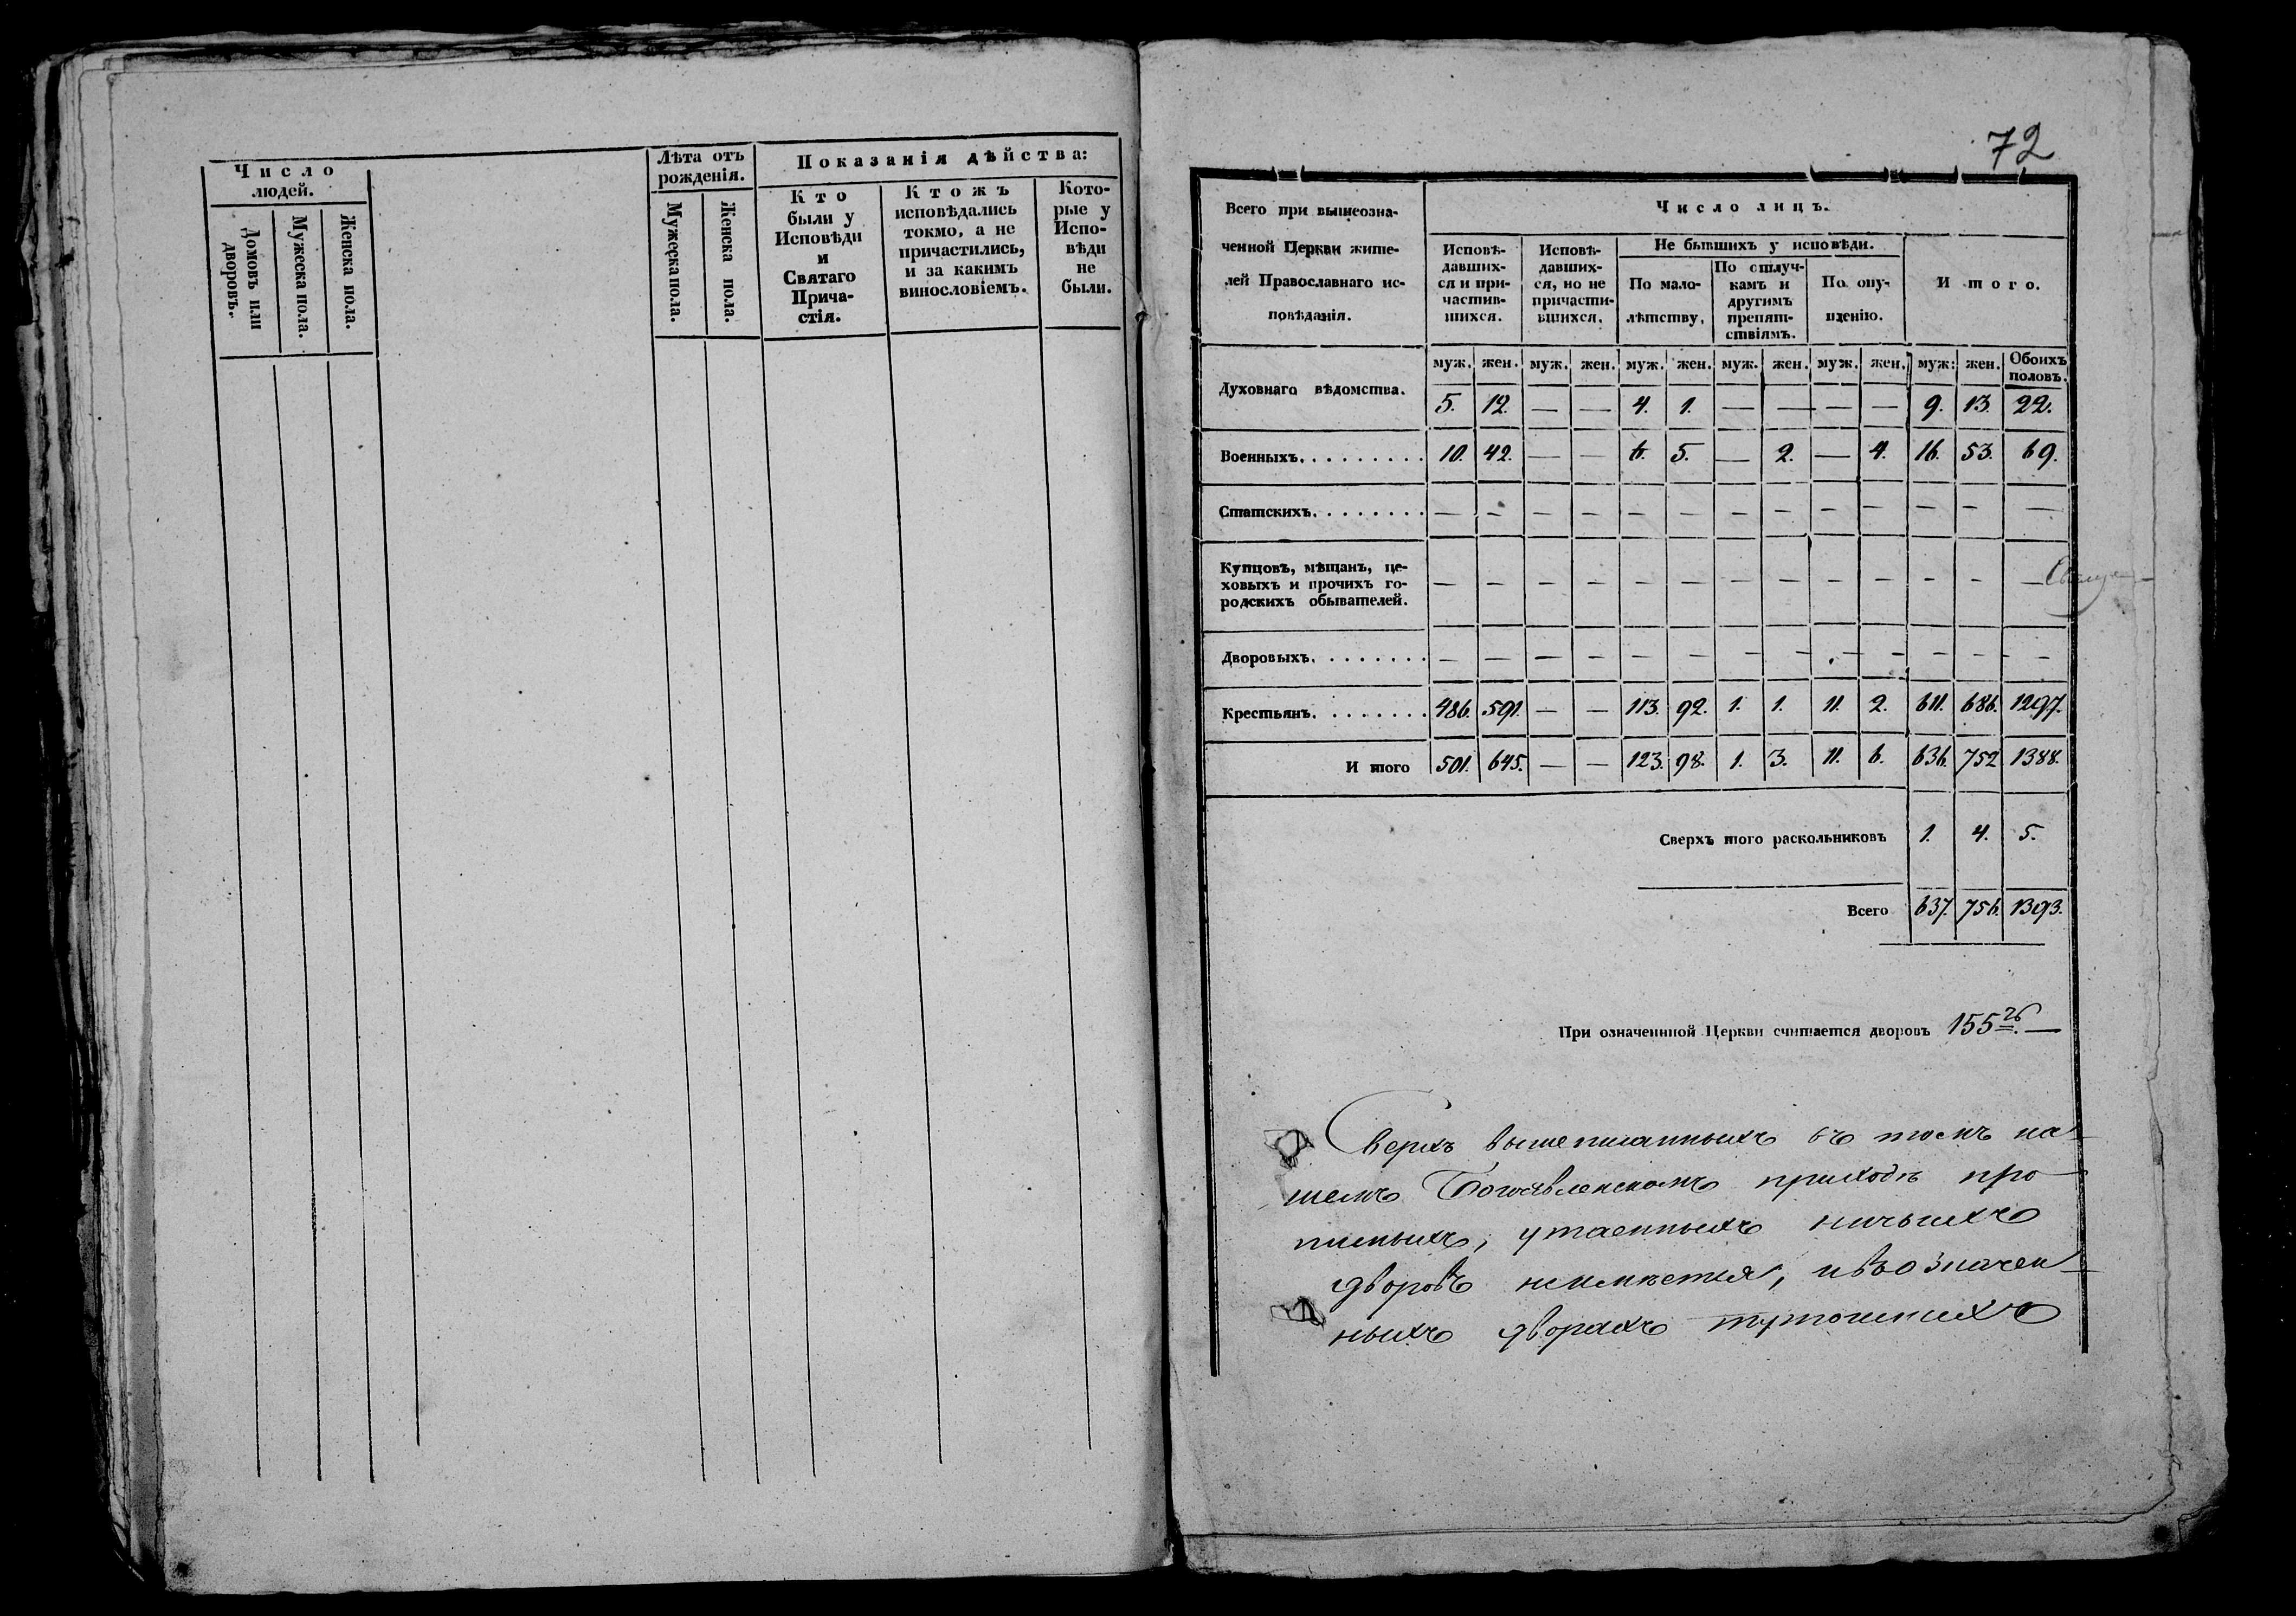 Число
людей.
Домовъ или
дворовъ.
Мужеска пола.
Женска пола.
Лѣта отъ
рожденія.
Мужеска пола.
Женска пола.
Показанія дѣйства:
Кто
были у
Исповѣди
и
Святаго
Прича-
стія.
Ктожъ
исповѣдались
токмо, а не
причастились,
и за какимъ
винословіемъ.
Кото-
рые у
Испо-
вѣди
не
были.
72
Всего при вышеозна-
ченной Церкви жите-
лей Православнаго ис-
повѣданія.
Число лицъ.
Исповѣ-
давших-
ся и при-
частив-
шихся.
Исповѣ-
давших-
ся, но не
причасти-
вшихся.
Не бывшихъ у исповѣди.
По мало-
лѣтству.
По отлуч-
камъ и
другимъ
препят-
ствіямъ.
По опу-
щенію.
Итого.
муж. жен. муж. жен. муж. жен. муж. жен. муж. жен. муж: жен. Обоихъ
половъ.
Духовнаго вѣдомства. 5. 12. — — 4. 1. — — — — 9. 13. 22.
Военныхъ......... 10. 42. — — 6. 5. — 2. — 4. 16. 53. 69.
Статскихъ........ — — — — — — — — — — — — —
Купцовъ, мѣщанъ, це-
ховыхъ и прочихъ го-
родскихъ обывателей. — — — — — — — — — — — — —
Дворовыхъ........ — — — — — — — — — — — — —
Крестьянъ........ 486. 591. — — 113. 92. 1. 1. 11. 2. 611. 686. 1297.
Итого 501. 645. — — 123. 98. 1. 3. 11. 6. 636. 752 1388.
Сверхъ того раскольниковъ 1. 4. 5.
Всего 637. 756. 1393.
При означеннной Церкви считается дворовъ 155
Сверхъ вышеписанныхъ въ томъ на-
шемъ Богоявленскомъ приходѣ про
писныхъ, утаенныхъ ничьихъ
дворовъ неимѣется, ивъозначен-
ныхъ дворахъ тутошнихъ